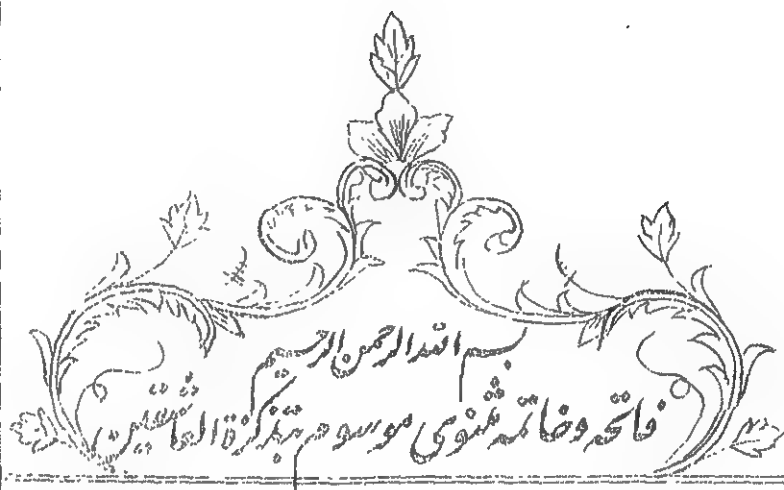 بسم الله الرحمن الرحیم
فاتحه و خاتمه مثنوی موسوم بتذکرة العاشقین